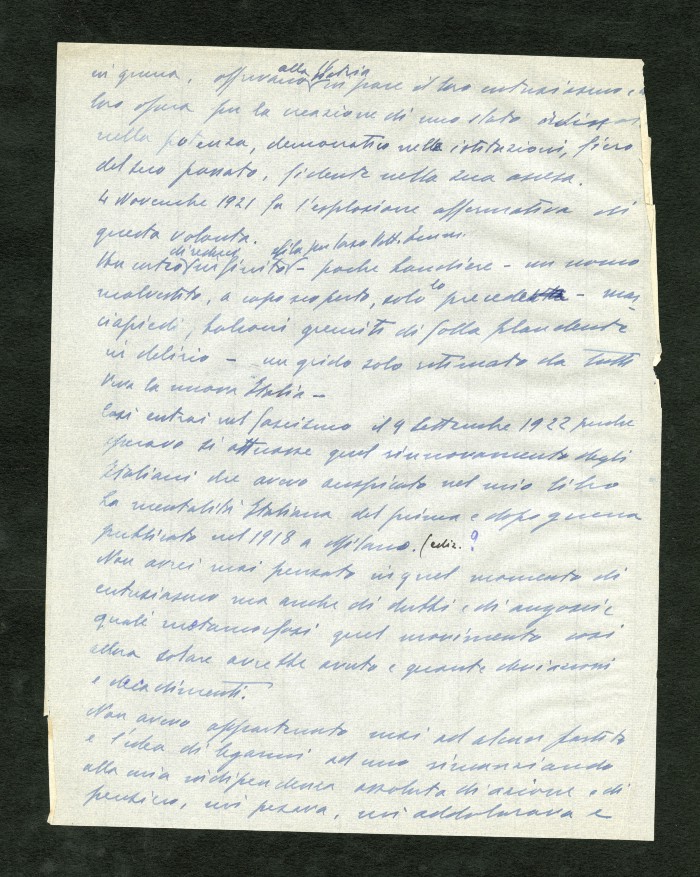 in guerra, offrivano alla Patria in pace il loro entusiasmo, e
loro opera per la creazione di uno stato
nella potenza, democratico nelle istituzioni, fiero
del suo passato, fidente nella sua ascesa.
4 Novembre 1921 fu l'esplosione affermativa di
questa volontà.
Un corteo di reduci infinito - poche bandiere - un uomo
malvestito, a capo scoperto, solo lo precede - mar-
ciapiedi, balconi gremiti di folla plaudente
in delirio - un grido solo ritmato da tutti
Viva la nuova Italia -
Così entrai nel fascismo il 9 Settembre 1922 perché
speravo si attuasse quel rinnovamento degli
Italiani che avevo auspicato nel mio libro
La mentalità Italiana del prima e dopo guerra
pubblicato nel 1918 a Milano. (ediz. ?
Non avrei mai pensato in quel momento di
entusiasmo ma anche di dubbi e di angoscie
quale metamorfosi quel movimento così
allora solare avrebbe avuto e quante deviazioni
e decadimenti.
Non avevo appartenuto mai ad alcun partito
e l'idea di legarmi ad uno rinunziando
alla mia indipendenza assoluta di azione e di
pensiero, mi pesava, mi addolorava e